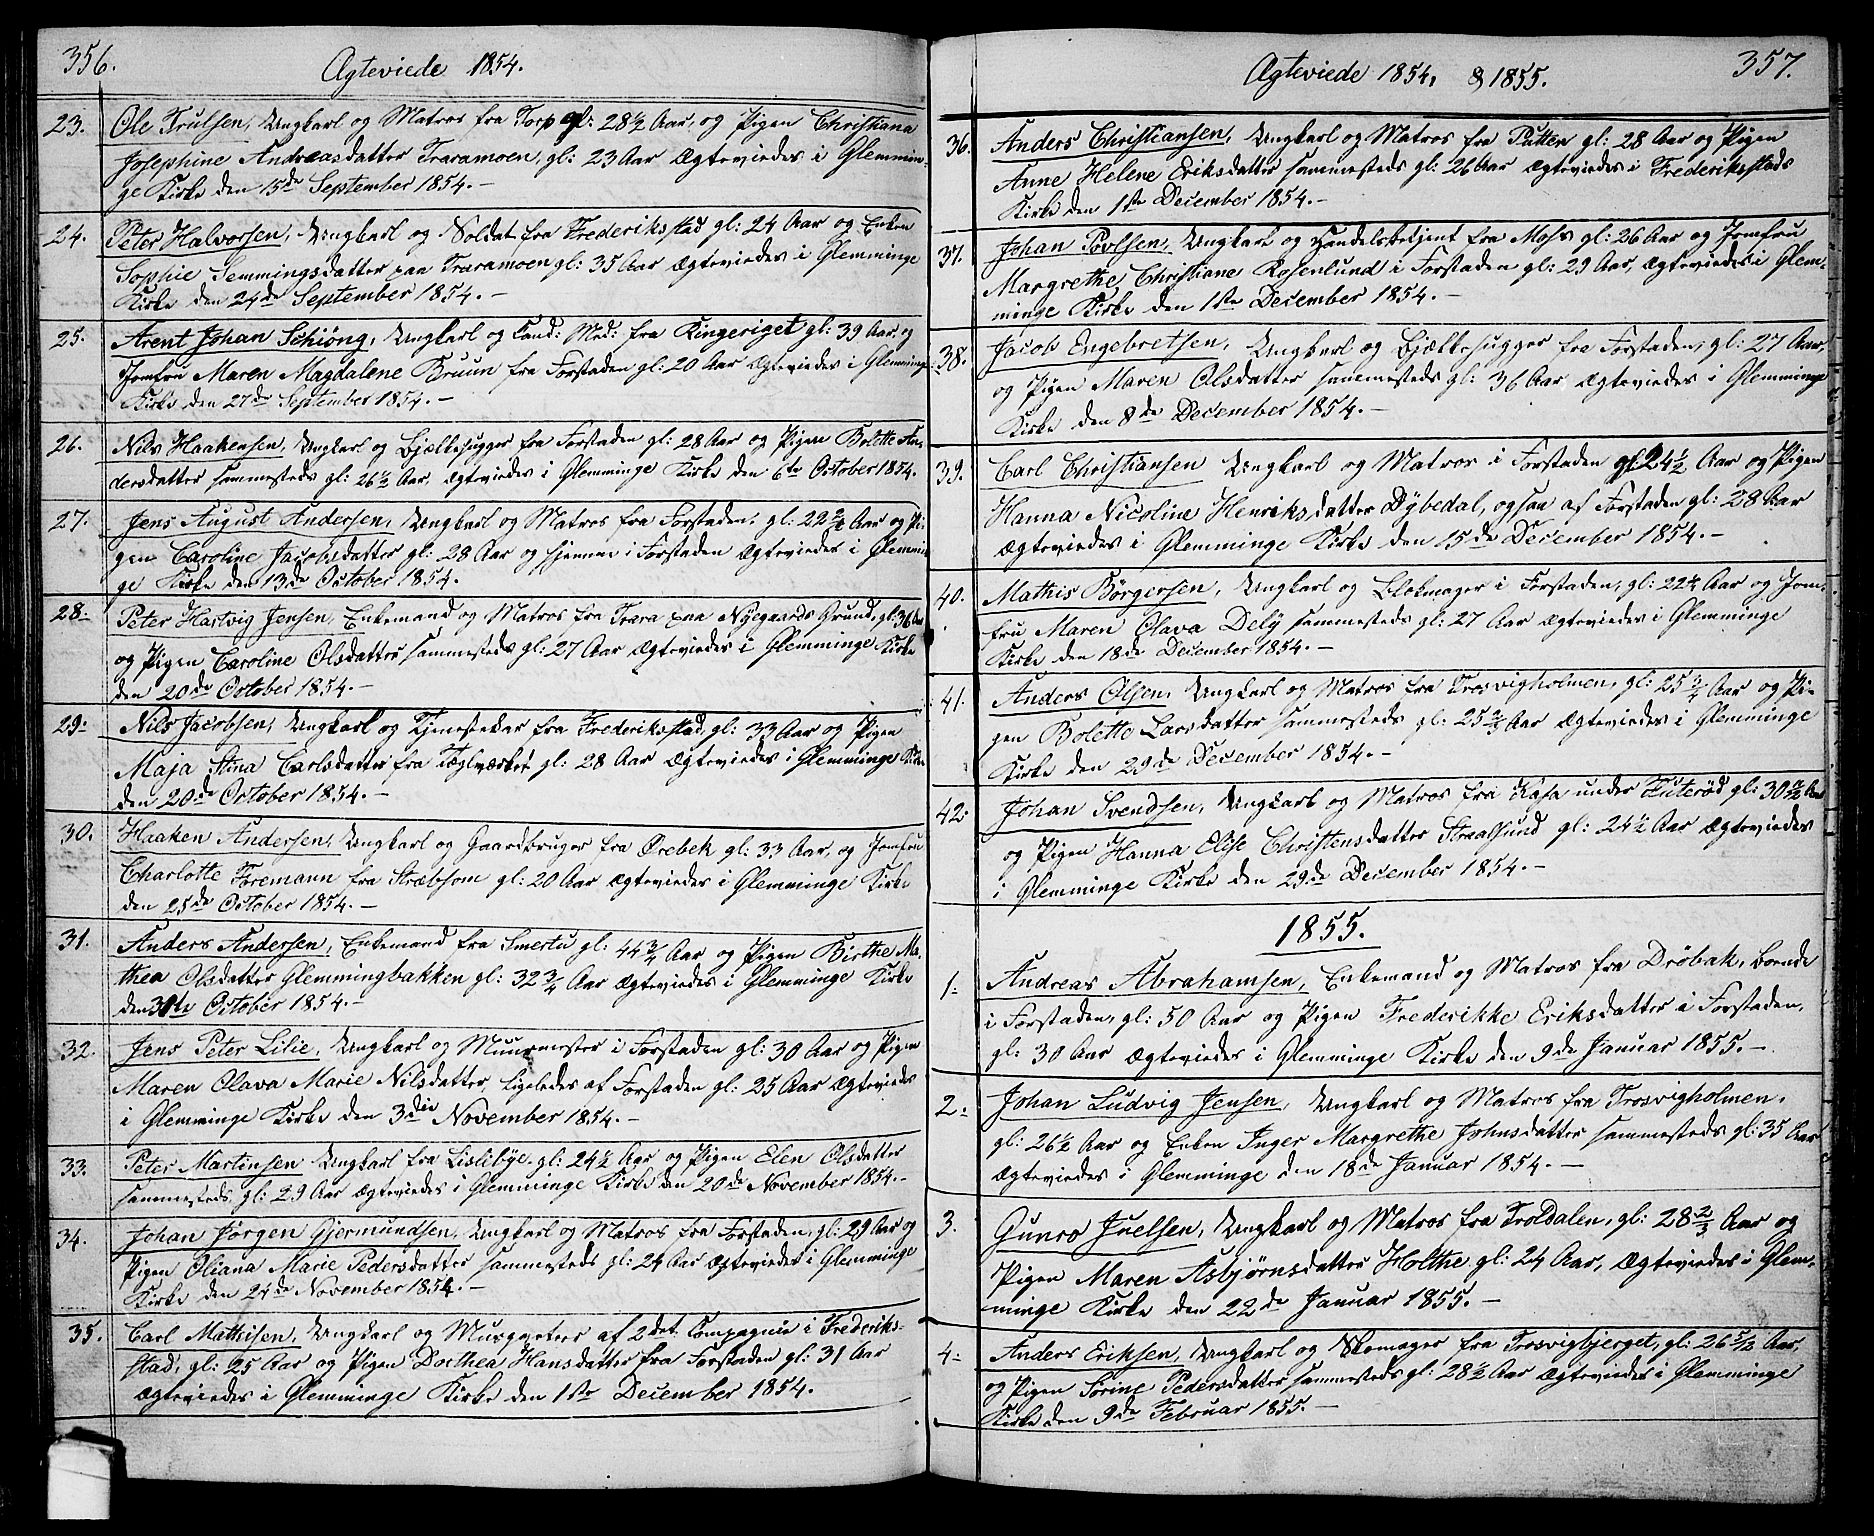 356.
Ægteviede 1854.
23. Ole Trulsen, Ungkarl og Matros fra Torp gl: 28½ Aar, og Pigen Christiana
Josephine Andreasdatter Traramoen, gl: 23 Aar Ægteviedes i Glemmin-
ge Kirke den 15de September 1854.-
24. Peter Halvorsen, Ungkarl og Soldat fra Frederikstad gl: 24 Aar og Enken
Sophie Semmingsdatter paa Traramoen gl: 35 Aar Ægteviedes i Glemminge
Kirke den 24de September 1854.-
25. Arent Johan Schiöng, Ungkarl og Cand: Med: fra Ringeriget gl: 39 Aar, og
Jomfru Maren Magdalene Bruun fra Forstaden gl: 20 Aar Ægteviedes i Glemminge
Kirke den 27de September 1854.-
26. Nils Haakensen, Ungkarl og Bjælkehugger fra Forstaden gl: 28 Aar og Pigen Bolette An-
dersdatter sammesteds gl: 26½ Aar, Ægteviedes i Glemminge Kirke den 6te October 1854.
27. Jens August Andersen, Ungkarl og Matros fra Forstaden, gl: 22 Aar og Pi-
gen Caroline Jacobsdatter gl: 28 Aar og hjemme i Forstaden Ægteviedes i Glemmin
ge Kirke den 13de October 1854.
28. Peter Hartvig Jensen, Enkemand og Matros fra Trara paa Nygaards Grund, gl: 36 Aar
og Pigen Caroline Olsdatter sammesteds gl: 27 Aar Ægteviedes i Glemminge Kirke
den 20de October 1854.-
29. Nils Jacobsen, Ungkarl og Tjenestekar fra Frederikstad, gl: 33 Aar og Pigen
Maja Stina Carlsdatter fra Teglværket gl: 28 Aar Ægteviedes i Glemminge Kirke
den 20de October 1854.-
30. Haaken Andersen, Ungkarl og Gaardbruger fra Ørebek gl: 33 Aar, og Jomfru
Charlotte Foremann fra Stræbsom gl: 20 Aar Ægteviedes i Glemminge Kirke
den 25de October 1854.-
31. Anders Andersen, Enkemand fra Smertu gl: 44¾ Aar og Pigen Birthe Ma-
thea Olsdatter Glemmingbakken gl: 32¾ Aar Ægteviedes i Glemminge Kirke
den 31te October 1854.-
32. Jens Peter Lilie, Ungkarl og Muurmester i Forstaden gl: 30 Aar og Pigen
Maren Olava Marie Nilsdatter, ligeledes af Forstaden gl: 25 Aar Ægteviedes
i Glemminge Kirke den 3die November 1854.-
33. Peter Martinsen Ungkarl fra Lislebye gl: 24½ Aar og Pigen Elen Olsdatter
sammesteds, gl: 29 Aar Ægteviedes i Glemminge Kirke den 20de November 1854.-
34. Johan Jørgen Gjermundsen, Ungkarl og Matros fra Forstaden, gl: 29 Aar og
Pigen Oliana Marie Pedersdatter sammesteds gl: 24 Aar Ægteviedes i Glemminge
Kirke den 24de November 1854.-
35. Carl Mathisen, Ungkarl og Musqveteer af 2det Compagnie i Frederik-
stad, gl: 25 Aar og Pigen Dorthea Hansdatter fra Forstaden gl: 31 Aar
Ægteviedes i Glemminge Kirke den 1ste December 1854.
Ægteviede 1854, & 1855.
357.
36. Anders Christiansen, Ungkarl og Matros fra Putten gl: 28 Aar og Pigen
Anne Helene Eriksdatter sammesteds gl: 26 Aar Ægteviedes i Frederikstads
Kirke den 1ste December 1854.-
37. Johan Povlsen, Ungkarl og Handelsbetjent fra Moss gl: 26 Aar og Jomfru
Margrethe Christiane Rosenlund i Forstaden gl: 29 Aar, Ægteviedes i Glem-
minge Kirke den 1ste December 1854.-
38. Jacob Engebretsen, Ungkarl og Bjælkehugger fra Forstaden, gl: 27 Aar,
og Pigen Maren Olsdatter sammesteds gl: 36 Aar, Ægteviedes i Glemminge
Kirke den 8de December 1854.-
39. Carl Christiansen Ungkarl og Matros i Forstaden gl: 24½ Aar og Pigen
Hanna Nicoline Henriksdatter Dybedal, ogsaa af Forstaden gl: 28 Aar
Ægteviedes i Glemminge Kirke den 15de December 1854.-
40. Mathis Börgersen, Ungkarl og Blokmager i Forstaden, gl: 22½ Aar og Jom-
fru Maren Olava Dely sammesteds gl: 27 Aar Ægteviedes i Glemminge
Kirke den 18de December 1854.-
41. Anders Olsen, Ungkarl og Matros fra Trosvigholmen, gl: 25 Aar og Pi-
gen Bolette Larsdatter sammesteds gl: 25⅔ Aar Ægteviedes i Glemminge
Kirke den 29de December 1854.-
42. Johan Svendsen, Ungkarl og Matros fra Kasa under Futeröd gl: 30 Aar
og Pigen Hanna Elise Christensdatter Straalsund gl: 24½ Aar Ægteviedes
i Glemminge Kirke den 29de December 1854.-
1855.
1. Andreas Abrahamsen, Enkemand og Matros fra Dröbak, boende
i Forstaden, gl: 50 Aar og Pigen Frederikke Eriksdatter i Forstaden,
gl: 30 Aar Ægteviedes i Glemminge Kirke den 9de Januar 1855.-
2. Johan Ludvig Jensen, Ungkarl og Matros fra Trosvigholmen,
gl: 26½ Aar og Enken Inger Margrethe Johnsdatter sammesteds gl: 35 Aar
Ægteviedes i Glemminge den 18de Januar 1854.-
3. Gunro Juelsen, Ungkarl og Matros fra Troldalen, gl: 28⅔ Aar og
Pigen Maren Asbjørnsdatter Holthe gl: 24 Aar, Ægteviedes i Glem-
minge Kirke den 22de Januar 1855.-
4. Anders Eriksen, Ungkarl og Skomager fra Trosvigbjerget, gl: 26 5/12 Aar,
og Pigen Sorine Pedersdatter sammesteds gl: 28½ Aar Ægteviedes i Glemminge
Kirke den 9de Februar 1855.-